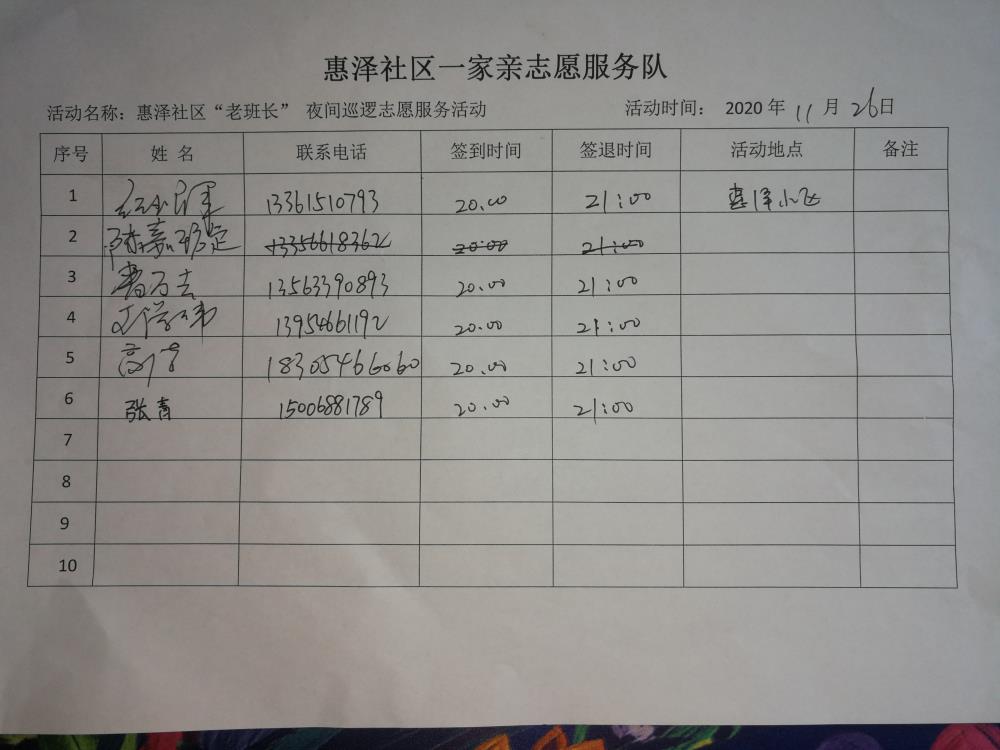 惠泽社区一家亲志愿服务队
活动名称：惠泽社区“老班长” 夜间巡逻志愿服务活动 活动时间： 2020 年 11 月 26日
序号 姓 名 联系电话 签到时间 签退时间 活动地点 备注
1 13361510793 20.00 21:00 惠泽小区
2 13356618362 20:00 21:00
3 13563390893 20.00 21:00
4 13954661192 20.00 21:00
5 18305466060 20.00 21:00
6 张青 15006881789 20.00 21:00
7
8
9
10